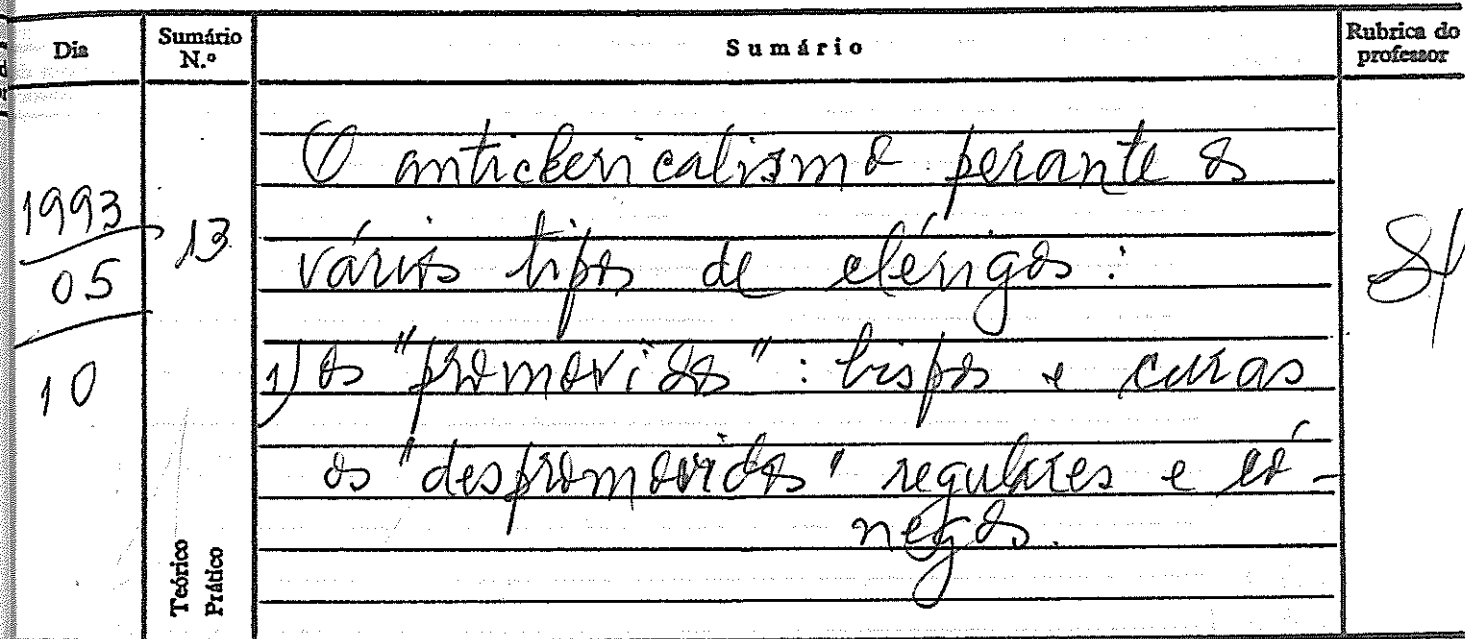 Dia
Sumário N.º
Sumário
Rubrica do professor
1993
05
10
13
O anticlericalismo perante os
vários tipos de clérigos:
1) os "promovidos": bispos e curas
os "despromovidos" regulares e có-
negos.
Teórico
Prático